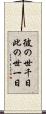 彼の世千日
此の世一日